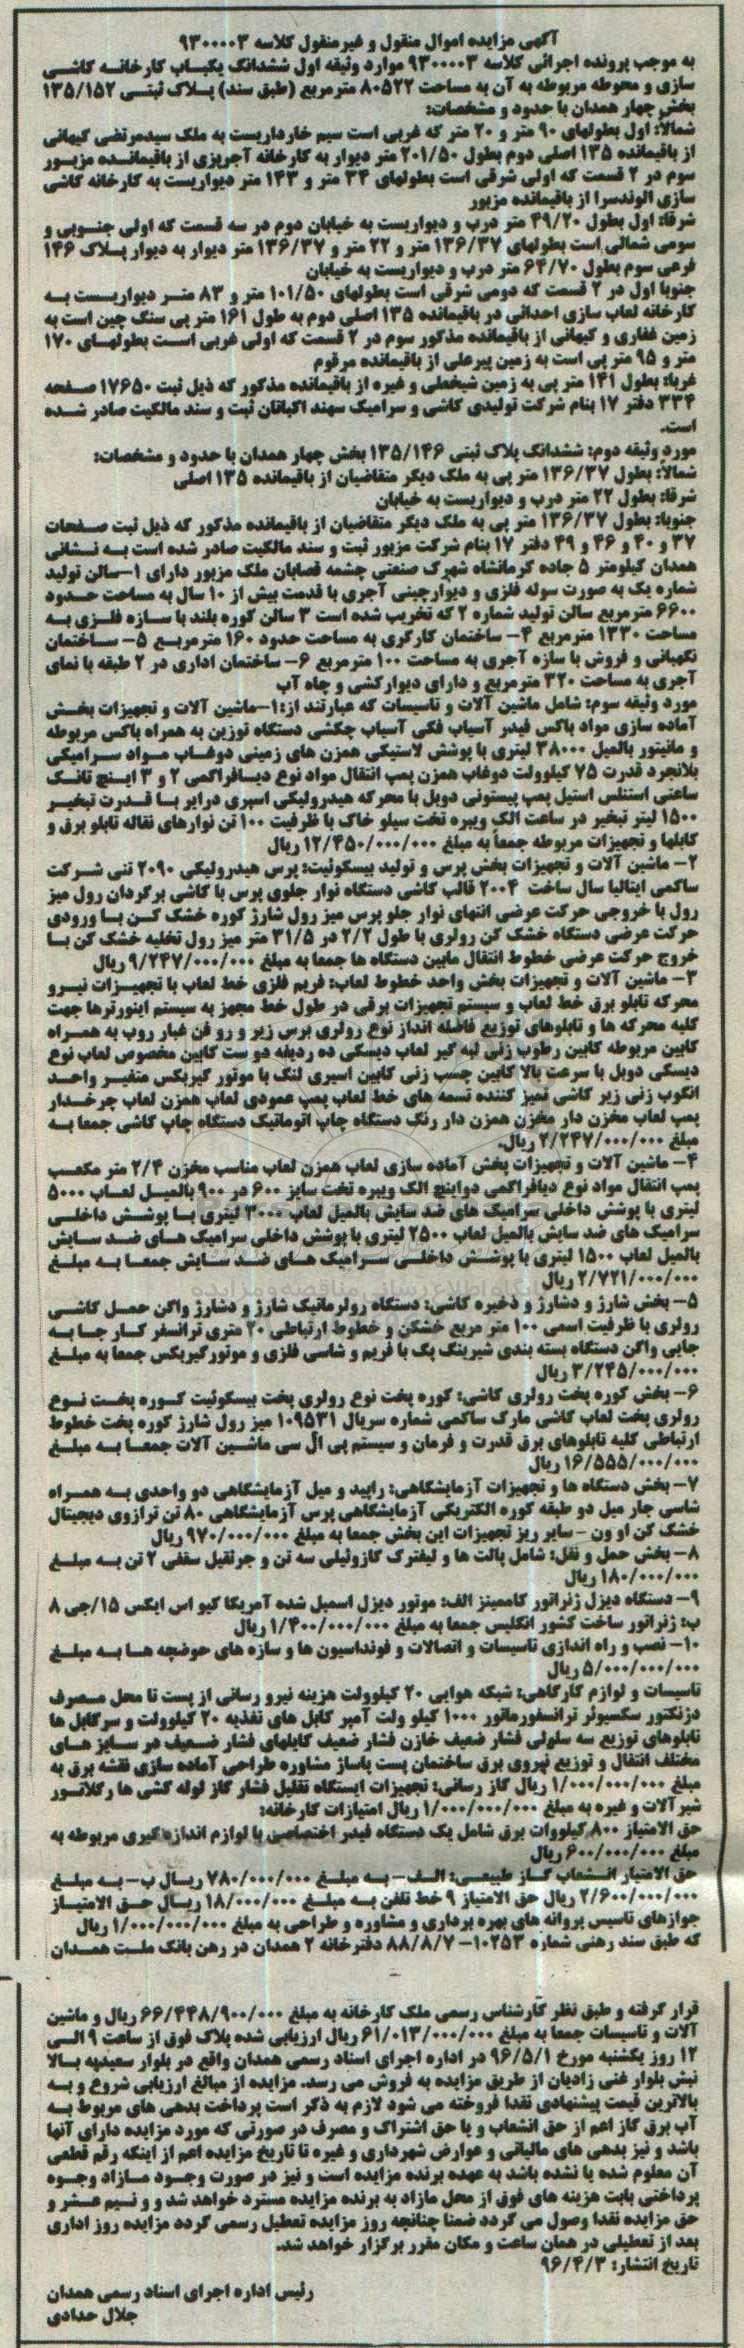 آگهی مزایده اموال منقول و غیرمنقول کلاسه ۹۳۰۰۰۰۳
به موجب پرونده اجرائی کلاسه ۹۳۰۰۰۰۳ موارد وثیقه اول ششدانگ یکباب کارخانه کاشی
سازی و محوطه مربوطه به آن به مساحت ۸۰۵۲۲ مترمربع (طبق سند) پلاک ثبتی ۱۳۵/۱۵۲
بخش چهار همدان با حدود و مشخصات:
شمالاً: اول بطولهای ۹۰ متر و ۲۰ متر که غربی است سیم خارداریست به ملک سیدمرتضی کیهانی
از باقیمانده ۱۳۵ اصلی دوم بطول ۲۰۱/۵۰ متر دیوار به کارخانه آجرپزی از باقیمانده مزبور
سوم در ۲ قسمت که اولی شرقی است بطولهای ۳۴ متر و ۱۴۳ متر دیواریست به کارخانه کاشی
سازی الوندسرا از باقیمانده مزبور
شرقا: اول بطول ۴۹/۲۰ متر درب و دیواریست به خیابان دوم در سه قسمت که اولی جنوبی و
سومی شمالی است بطولهای ۱۳۶/۳۷ متر و ۲۲ متر و ۱۳۶/۳۷ متر دیوار به دیوار پلاک ۱۴۶
فرعی سوم بطول ۶۴/۷۰ متر درب و دیواریست به خیابان
جنوبا اول در ۲ قسمت که دومی شرقی است بطولهای ۱۰۱/۵۰ متر و ۸۳ متر دیواریست به
کارخانه لعاب سازی احداثی در باقیمانده ۱۳۵ اصلی دوم به طول ۱۶۱ متر پی سنگ چین است به
زمین غفاری و کیهانی از باقیمانده مذکور سوم در ۲ قسمت که اولی غربی است بطولهای ۱۷۰
متر و ۹۵ متر پی است به زمین پیرعلی از باقیمانده مرقوم
غربا: بطول ۱۴۱ متر پی به زمین شیخعلی و غیره از باقیمانده مذکور که ذیل ثبت ۱۷۶۵۰ صفحه
۳۳۴ دفتر ۱۷ بنام شرکت تولیدی کاشی و سرامیک سهند اکباتان ثبت و سند مالکیت صادر شده
است.
مورد وثیقه دوم: ششدانگ پلاک ثبتی ۱۳۵/۱۴۶ بخش چهار همدان با حدود و مشخصات:
شمالاً: بطول ۱۳۶/۳۷ متر پی به ملک دیگر متقاضیان از باقیمانده ۱۳۵ اصلی
شرقا: بطول ۲۲ متر درب و دیواریست به خیابان
جنوبا: بطول ۱۳۶/۳۷ متر پی به ملک دیگر متقاضیان از باقیمانده مذکور که ذیل ثبت صفحات
۳۷ و ۴۰ و ۴۶ و ۴۹ دفتر ۱۷ بنام شرکت مزبور ثبت و سند مالکیت صادر شده است به نشانی
همدان کیلومتر ۵ جاده کرمانشاه شهرک صنعتی چشمه قصابان ملک مزبور دارای ۱-سالن تولید
شماره یک به صورت سوله فلزی و دیوارچینی آجری با قدمت بیش از ۱۰ سال به مساحت حدود
۶۶۰۰ مترمربع سالن تولید شماره ۲ که تخریب شده است ۳ سالن کوره بلند با سازه فلزی به
مساحت ۱۳۳۰ مترمربع ۴- ساختمان کارگری به مساحت حدود ۱۶۰ مترمربع ۵- ساختمان
نگهبانی و فروش با سازه آجری به مساحت ۱۰۰ مترمربع ۶- ساختمان اداری در ۲ طبقه با نمای
آجری به مساحت ۳۲۰ مترمربع و دارای دیوارکشی و چاه آب
مورد وثیقه سوم: شامل ماشین آلات و تاسیسات که عبارتند از:۱-ماشین آلات و تجهیزات بخش
آماده سازی مواد باکس فیدر آسیاب فکی آسیاب چکشی دستگاه توزین به همراه باکس مربوطه
و مانیتور بالمیل ۳۸۰۰۰ لیتری با پوشش لاستیکی همزن های زمینی دوغاب مواد سرامیکی
بلانجرد قدرت ۷۵ کیلوولت دوغاب همزن پمپ انتقال مواد نوع دیافراگمی ۲ و ۳ اینچ تانک
ساعتی استنلس استیل پمپ پیستونی دوبل با محرکه هیدرولیکی اسپری درایر با قدرت تبخیر
۱۵۰۰ لیتر تبخیر در ساعت الک ویبره تخت سیلو خاک با ظرفیت ۱۰۰ تن نوارهای نقاله تابلو برق و
کابلها و تجهیزات مربوطه جمعاً به مبلغ ۱۲/۴۵۰/۰۰۰/۰۰۰ ریال
۲- ماشین آلات و تجهیزات بخش پرس و تولید بیسکوئیت: پرس هیدرولیکی ۲۰۹۰ تنی شرکت
ساکمی ایتالیا سال ساخت ۲۰۰۴ قالب کاشی دستگاه نوار جلوی پرس با کاشی برگردان رول میز
رول با خروجی حرکت عرضی انتهای نوار جلو پرس میز رول شارژ کوره خشک کن با ورودی
حرکت عرضی دستگاه خشک کن رولری با طول ۲/۲ در ۳۱/۵ متر میز رول تخلیه خشک کن با
خروج حرکت عرضی خطوط انتقال مابین دستگاه ها جمعا به مبلغ ۹/۲۴۷/۰۰۰/۰۰۰ ریال
۳- ماشین آلات و تجهیزات بخش واحد خطوط لعاب: فریم فلزی خط لعاب با تجهیزات نیرو
محرکه تابلو برق خط لعاب و سیستم تجهیزات برقی در طول خط مجهز به سیستم اینورترها جهت
کلیه محرکه ها و تابلوهای توزیع فاصله انداز نوع رولری برس زیر و رو فن غبار روب به همراه
کابین مربوطه کابین رطوب زنی لبه گیر لعاب دیسکی ده ردیفه دو ست کابین مخصوص لعاب نوع
دیسکی دوبل با سرعت بالا کابین چسب زنی کابین اسپری لنگ با موتور گیربکس متغیر واحد
انگوب زنی زیر کاشی تمیز کننده تسمه های خط لعاب پمپ عمودی لعاب همزن لعاب چرخدار
پمپ لعاب مخزن دار مخزن همزن دار رنگ دستگاه چاپ اتوماتیک دستگاه چاپ کاشی جمعا به
مبلغ ۲/۲۴۷/۰۰۰/۰۰۰ ریال.
۴- ماشین آلات و تجهیزات بخش آماده سازی لعاب همزن لعاب مناسب مخزن ۲/۴ متر مکعب
پمپ انتقال مواد نوع دیافراگمی دواینچ الک ویبره تخت سایز ۶۰۰ در ۹۰۰ بالمیل لعاب ۵۰۰۰
لیتری با پوشش داخلی سرامیک های ضد سایش بالمیل لعاب ۳۰۰۰ لیتری با پوشش داخلی
سرامیک های ضد سایش بالمیل لعاب ۲۵۰۰ لیتری با پوشش داخلی سرامیک های ضد سایش
بالمیل لعاب ۱۵۰۰ لیتری با پوشش داخلی سرامیک های ضد سایش جمعا به مبلغ
۲/۷۲۱/۰۰۰/۰۰۰ ریال
۵- بخش شارژ و دشارژ و ذخیره کاشی: دستگاه رولرماتیک شارژ و دشارژ واگن حمل کاشی
رولری با ظرفیت اسمی ۱۰۰ متر مربع خشکن و خطوط ارتباطی ۲۰ متری ترانسفر کار جا به
جایی واگن دستگاه بسته بندی شیرینگ پک با فریم و شاسی فلزی و موتورگیربکس جمعا به مبلغ
۳/۲۴۵/۰۰۰/۰۰۰ ریال
۶- بخش کوره پخت رولری کاشی: کوره پخت نوع رولری پخت بیسکوئیت کوره پخت نوع
رولری پخت لعاب کاشی مارک ساکمی شماره سریال ۱۰۹۵۳۱ میز رول شارژ کوره پخت خطوط
ارتباطی کلیه تابلوهای برق قدرت و فرمان و سیستم پی ال سی ماشین آلات جمعا به مبلغ
۱۶/۵۵۵/۰۰۰/۰۰۰ ریال
۷- بخش دستگاه ها و تجهیزات آزمایشگاهی: راپید و میل آزمایشگاهی دو واحدی به همراه
شاسی جار میل دو طبقه کوره الکتریکی آزمایشگاهی پرس آزمایشگاهی ۸۰ تن ترازوی دیجیتال
خشک کن او ون - سایر ریز تجهیزات این بخش جمعا به مبلغ ۹۷۰/۰۰۰/۰۰۰ ریال
۸- بخش حمل و نقل: شامل پالت ها و لیفترک گازوئیلی سه تن و جرثقیل سقفی ۲ تن به مبلغ
۱۸۰/۰۰۰/۰۰۰ ریال
۹- دستگاه دیزل ژنراتور کامینز الف: موتور دیزل اسمبل شده آمریکا کیو اس ایکس ۱۵/جی ۸
ب: ژنراتور ساخت کشور انگلیس جمعا به مبلغ ۱/۴۰۰/۰۰۰/۰۰۰ ریال
۱۰- نصب و راه اندازی تاسیسات و اتصالات و فونداسیون ها و سازه های حوضچه ها به مبلغ
۵/۰۰۰/۰۰۰/۰۰۰ ریال
تاسیسات و لوازم کارگاهی: شبکه هوایی ۲۰ کیلوولت هزینه نیرو رسانی از پست تا محل مصرف
دژنکتور سکسیونر ترانسفورماتور ۱۰۰۰ کیلو ولت آمپر کابل های تغذیه ۲۰ کیلوولت و سرکابل ها
تابلوهای توزیع سه سلولی فشار ضعیف خازن فشار ضعیف کابلهای فشار ضعیف در سایز های
مختلف انتقال و توزیع نیروی برق ساختمان پست پاساژ مشاوره طراحی آماده سازی نقشه برق به
مبلغ ۱/۰۰۰/۰۰۰/۰۰۰ ریال گاز رسانی: تجهیزات ایستگاه تقلیل فشار گاز لوله کشی ها رگلاتور
شیرآلات و غیره به مبلغ ۱/۰۰۰/۰۰۰/۰۰۰ ریال امتیازات کارخانه:
حق الامتیاز ۸۰۰ کیلووات برق شامل یک دستگاه فیدر اختصاصی با لوازم اندازه گیری مربوطه به
مبلغ ۶۰۰/۰۰۰/۰۰۰ ریال
حق الامتیاز انشعاب گاز طبیعی: الف- به مبلغ ۷۸۰/۰۰۰/۰۰۰ ریال ب- به مبلغ
۲/۶۰۰/۰۰۰/۰۰۰ ریال حق الامتیاز ۹ خط تلفن به مبلغ ۱۸/۰۰۰/۰۰۰ ریال حق الامتیاز
جوازهای تاسیس پروانه های بهره برداری و مشاوره و طراحی به مبلغ ۱/۰۰۰/۰۰۰/۰۰۰ ریال
که طبق سند رهنی شماره ۱۰۲۵۳- ۸۸/۸/۷ دفترخانه ۲ همدان در رهن بانک ملت همدان
قرار گرفته و طبق نظر کارشناس رسمی ملک کارخانه به مبلغ ۶۶/۴۴۸/۹۰۰/۰۰۰ ریال و ماشین
آلات و تاسیسات جمعا به مبلغ ۶۱/۰۱۳/۰۰۰/۰۰۰ ریال ارزیابی شده پلاک فوق از ساعت ۹ الی
۱۲ روز یکشنبه مورخ ۹۶/۵/۱ در اداره اجرای اسناد رسمی همدان واقع در بلوار سعیدیه بالا
نبش بلوار غنی زادیان از طریق مزایده به فروش می رسد. مزایده از مبالغ ارزیابی شروع و به
بالاترین قیمت پیشنهادی نقدا فروخته می شود لازم به ذکر است پرداخت بدهی های مربوط به
آب برق گاز اعم از حق انشعاب و یا حق اشتراک و مصرف در صورتی که مورد مزایده دارای آنها
باشد و نیز بدهی های مالیاتی و عوارض شهرداری و غیره تا تاریخ مزایده اعم از اینکه رقم قطعی
آن معلوم شده یا نشده باشد به عهده برنده مزایده است و نیز در صورت وجود مازاد وجوه
پرداختی بابت هزینه های فوق از محل مازاد به برنده مزایده مسترد خواهد شد و و نیم عشر و
حق مزایده نقدا وصول می گردد ضمنا چنانچه روز مزایده تعطیل رسمی گردد مزایده روز اداری
بعد از تعطیلی در همان ساعت و مکان مقرر برگزار خواهد شد.
تاریخ انتشار: ۹۶/۴/۳
رئیس اداره اجرای اسناد رسمی همدان
جلال حدادی